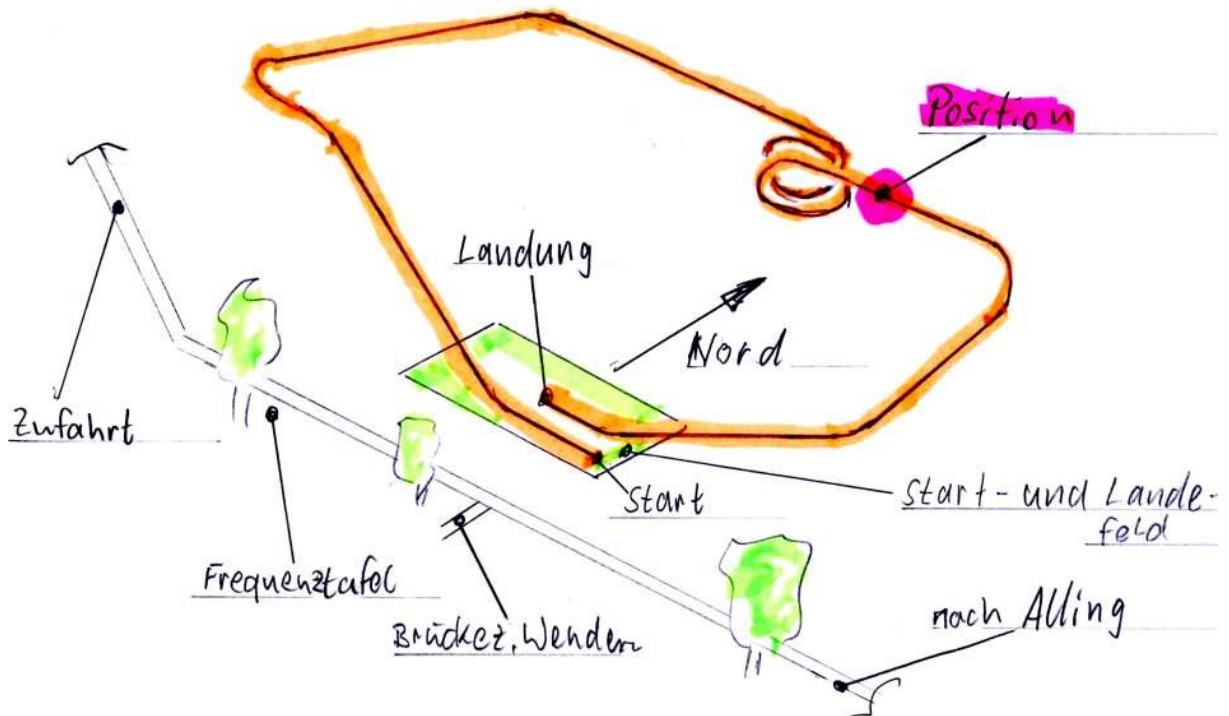 Position
Landung
Nord
Zufahrt
Start
Start- und Lande-
feld
Frequenztafel
Brücke z. Wenden
nach Alling